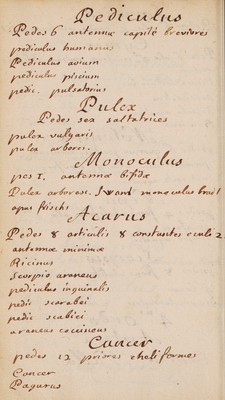 Pediculus
Pedes 6 antennæ capite breviores
pediculus humanus
Pediculus avium
pediculus piscium
pedic. pulsatorius
Pulex
Pedes sex saltatrices
pulex vulgaris
pulex arbores.
Monoculus
pes 1. antennæ bifidæ
Pulex arboresc. monoculus
opus frischi
Acarus
Pedes 8 articulis 8 constantes oculi 2
antennæ minimæ
Ricinus
Scorpio araneus
pediculus inguinalis
pedic scarabei
pedic scabiei
araneus coccineus
Cancer
pedes 12 priores cheliformes
Cancer
Pagurus